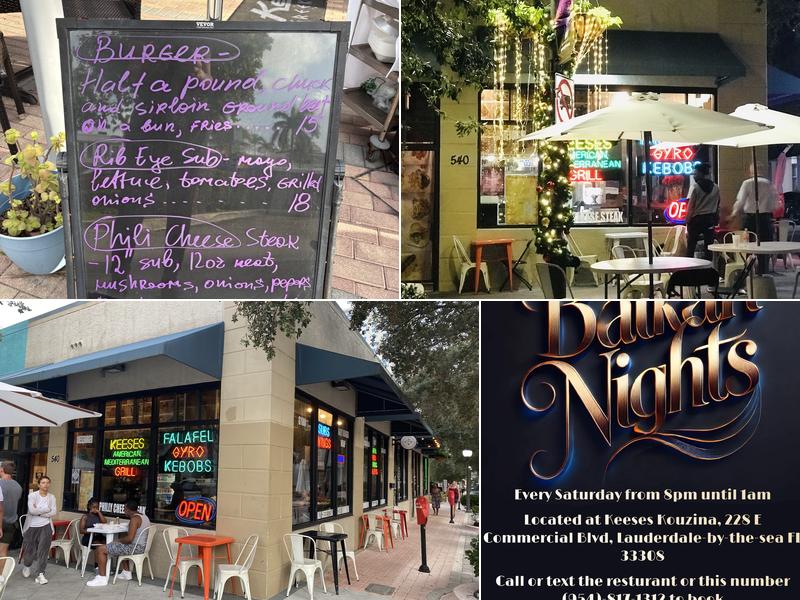 VEVOR
BURGER-
Half a pound chuck
and sirloin ground beef
on a bun, fries..... 15
Rib Eye Sub- mayo,
lettuce, tomatoes, grilled
onions........ 18
Phili Cheese Steak
-12" sub, 12oz meat,
mushrooms, onions, peppers
540
KEESES
AMERICAN
MEDITERRANEAN
GRILL
GYRO
KEBOBS
OP
CHEESE STEAK
540
KEESES
AMERICAN
MEDITERRANEAN
GRILL
FALAFEL
GYRO
KEBOBS
OPEN
PHILLY CHEE
SUBS
WINGS
Balkan
Nights
Every Saturday from 8pm until 1am
Located at Keeses Kouzina, 228 E
Commercial Blvd, Lauderdale-by-the-sea Fl
33308
Call or text the resturant or this number
(954)-817-1312 to book